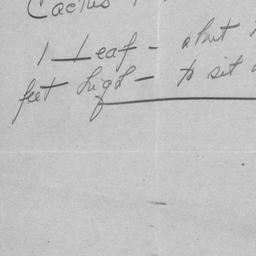 Cactus
1 Leaf - about
feet high - to sit